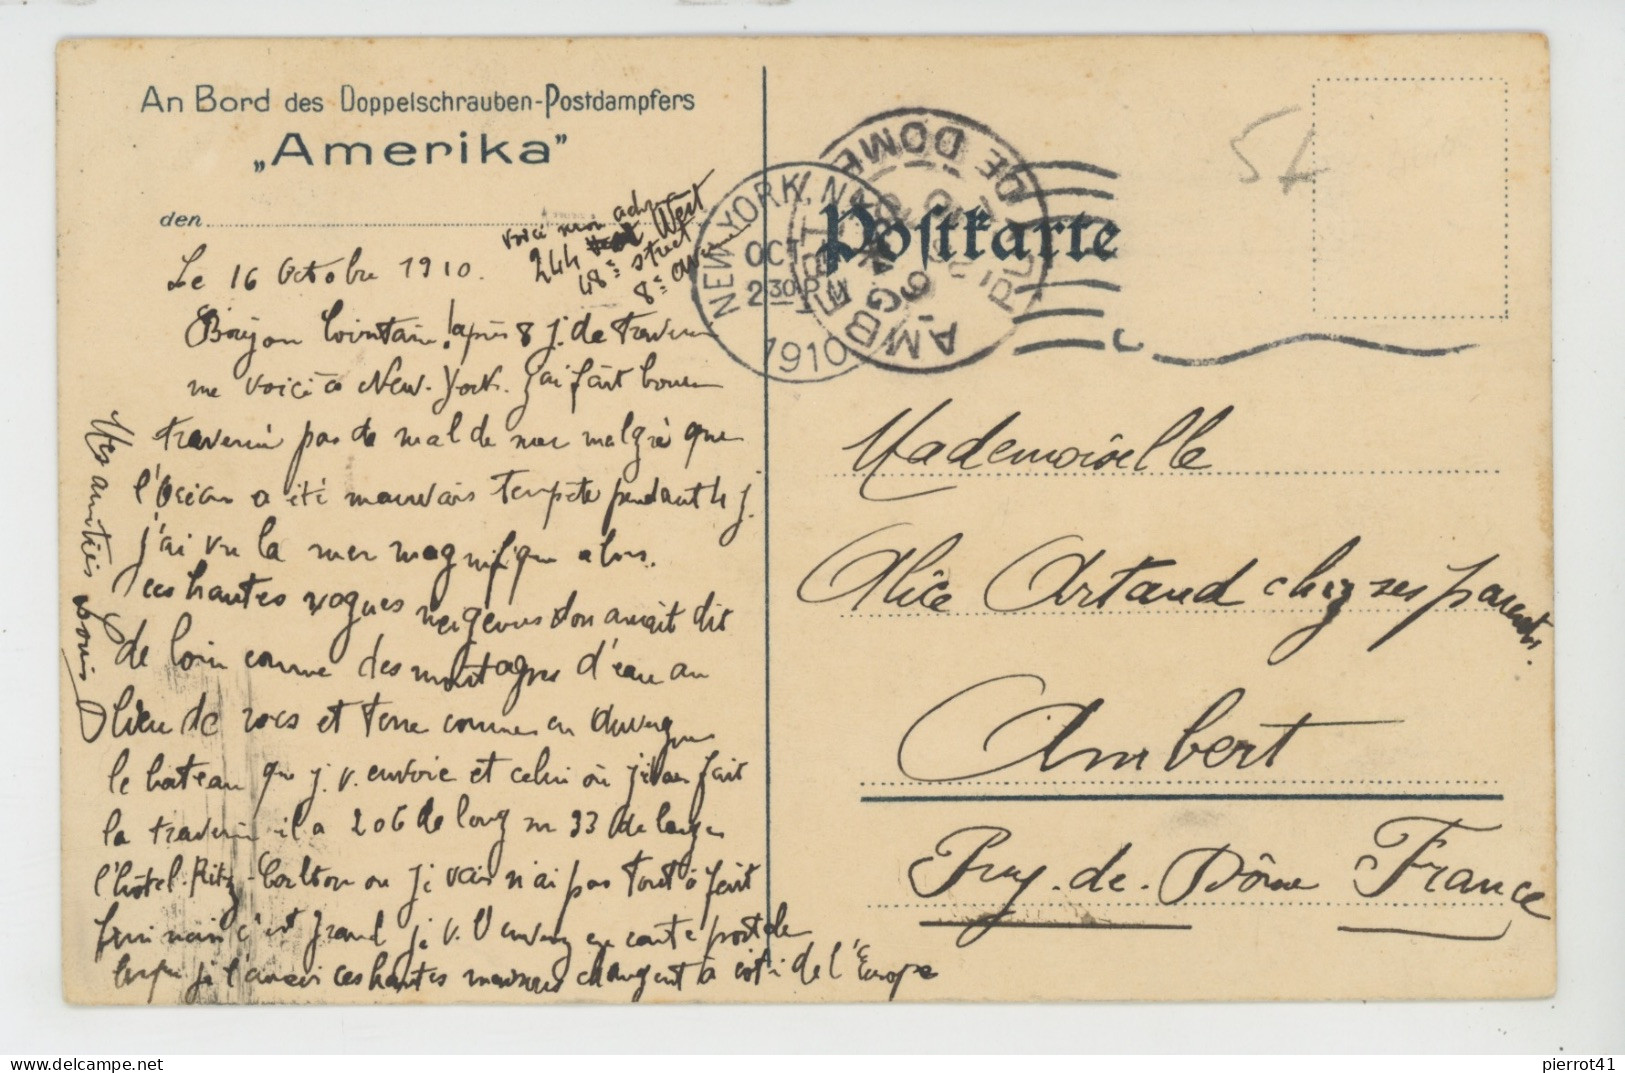 An Bord des Doppelschrauben-Postdampfers
„Amerika”
den
voici mon adr
244 West
48e street
8e av
Le 16 Octobre 1910.
lointain! après 8 j. de traversée
me voici à New-York. J'ai fait bonne
traversée pas de mal de mer malgré que
l'Océan a été mauvais tempête pendant 4 j.
j'ai vu la mer magnifique alors.
ces hautes vagues on aurait dit
de loin comme des montagnes d'eau au
lieu de rocs et terre comme en Auvergne
le bateau que j. v. envoie et celui où j'ai fait
la traversée il a 206 de long sur 23 de large
l'hôtel Ritz-Carlton où je vais n'ai pas tout à fait
fini mais c'est grand je v. l'enverrez en carte postale
lorsque je l'aurai ces hautes maisons changent à côté de l'Europe
Mes amitiés
Postkarte
NEW YORK, N.Y.
OCT
2 30 PM
1910
AMBERT
PUY DE DOME
Mademoiselle
Alice Artaud chez ses parents.
Ambert
Puy-de-Dôme France
pierrot41